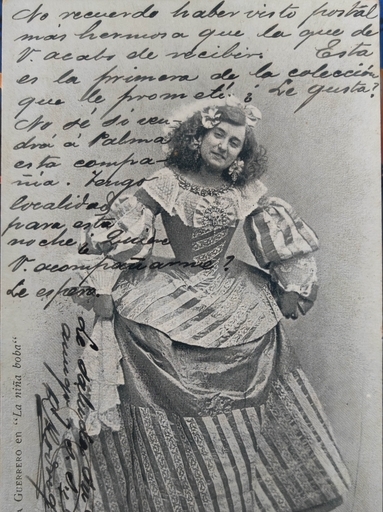 No recuerdo haber visto postal
mas hermosa que la que de
V. acabo de recibir. Esta
es la primera de la colección
que le prometí ¿Le gusta?
No sé si ven
drá á Palma
esta compa-
ñia. Tengo
localidad
para esta
noche ¿Quiere
V. acompañarme?
Le espero.
Le saluda su
amigo
A GUERRERO en "La niña boba"